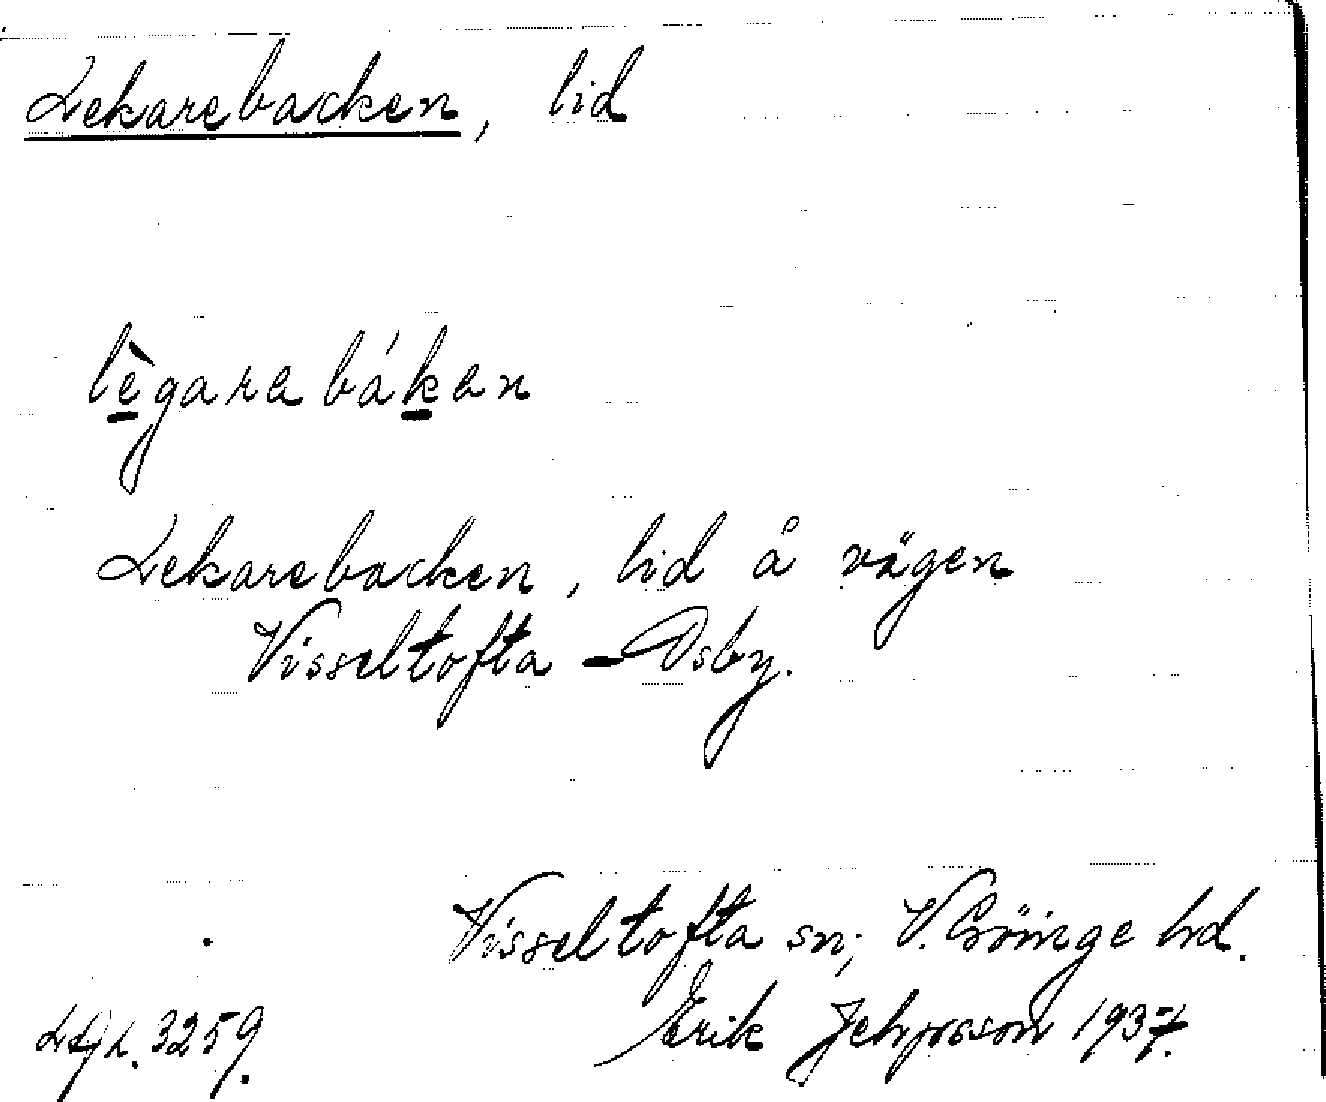 Lekarebacken, lid
lègarabákan
Lekarebacken, lid å vägen
Visseltofta – Osby.
Visseltofta sn; V. Göinge hd.
3259. Erik Jeppsson 1937.